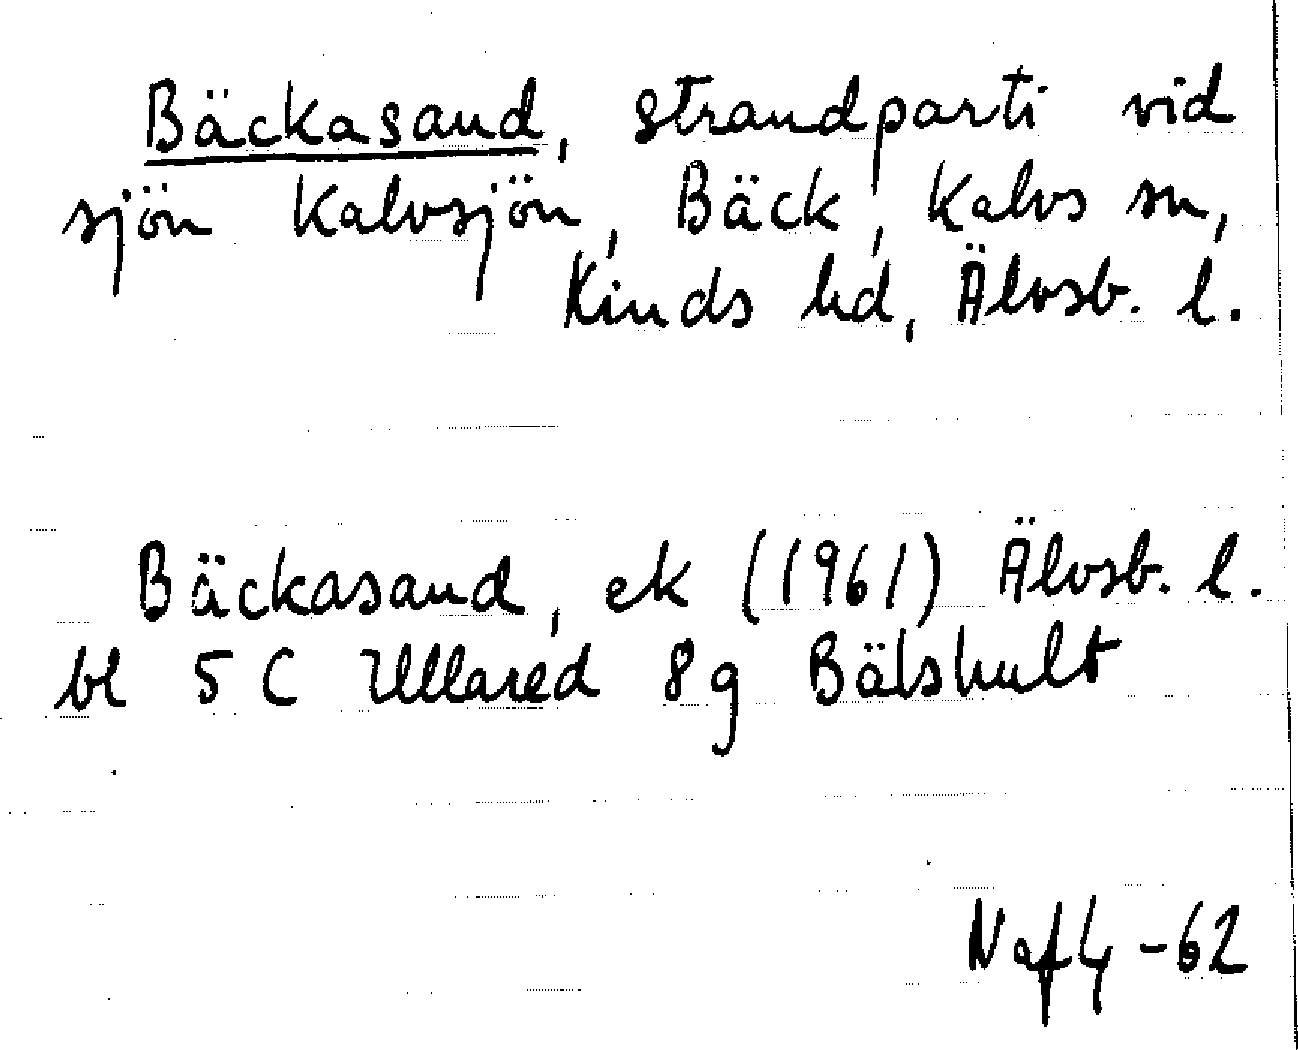 Bäckasand, strandparti vid
sjön Kalvsjön, Bäck, Kalvs sn,
Kinds hd, Älvsb. l.
Bäckasand, ek (1961) Älvsb. l.
bl 5 C Ullared 8g Bälshult
-62